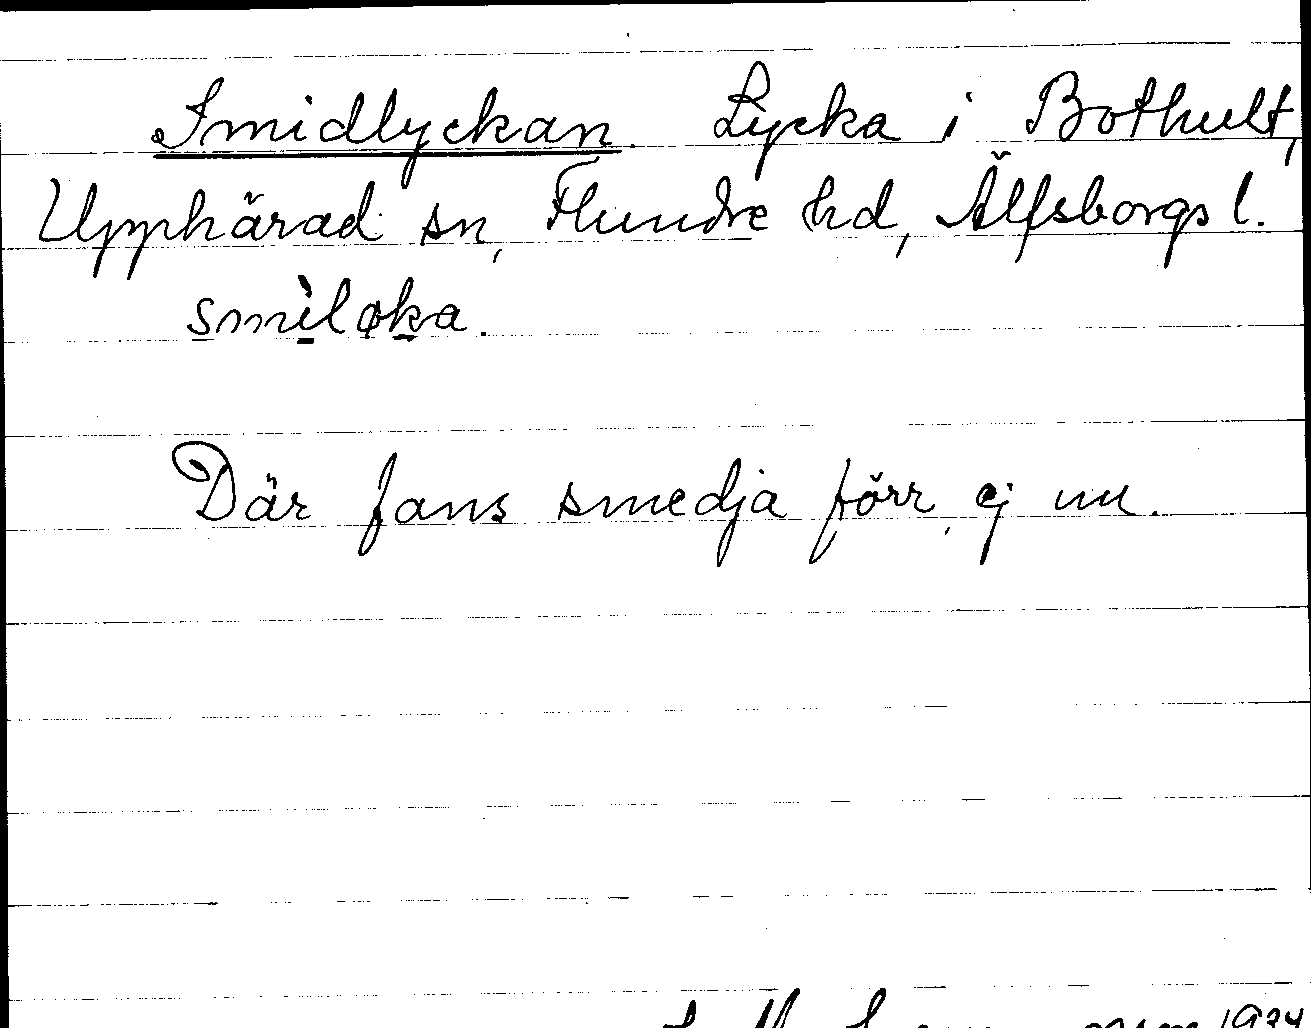 Smidlyckan. Lycka i Bothult,
Upphärad sn, Flundre hd, Älfsborgs l.
smìløka.
Där fans smedja förr, ej nu.